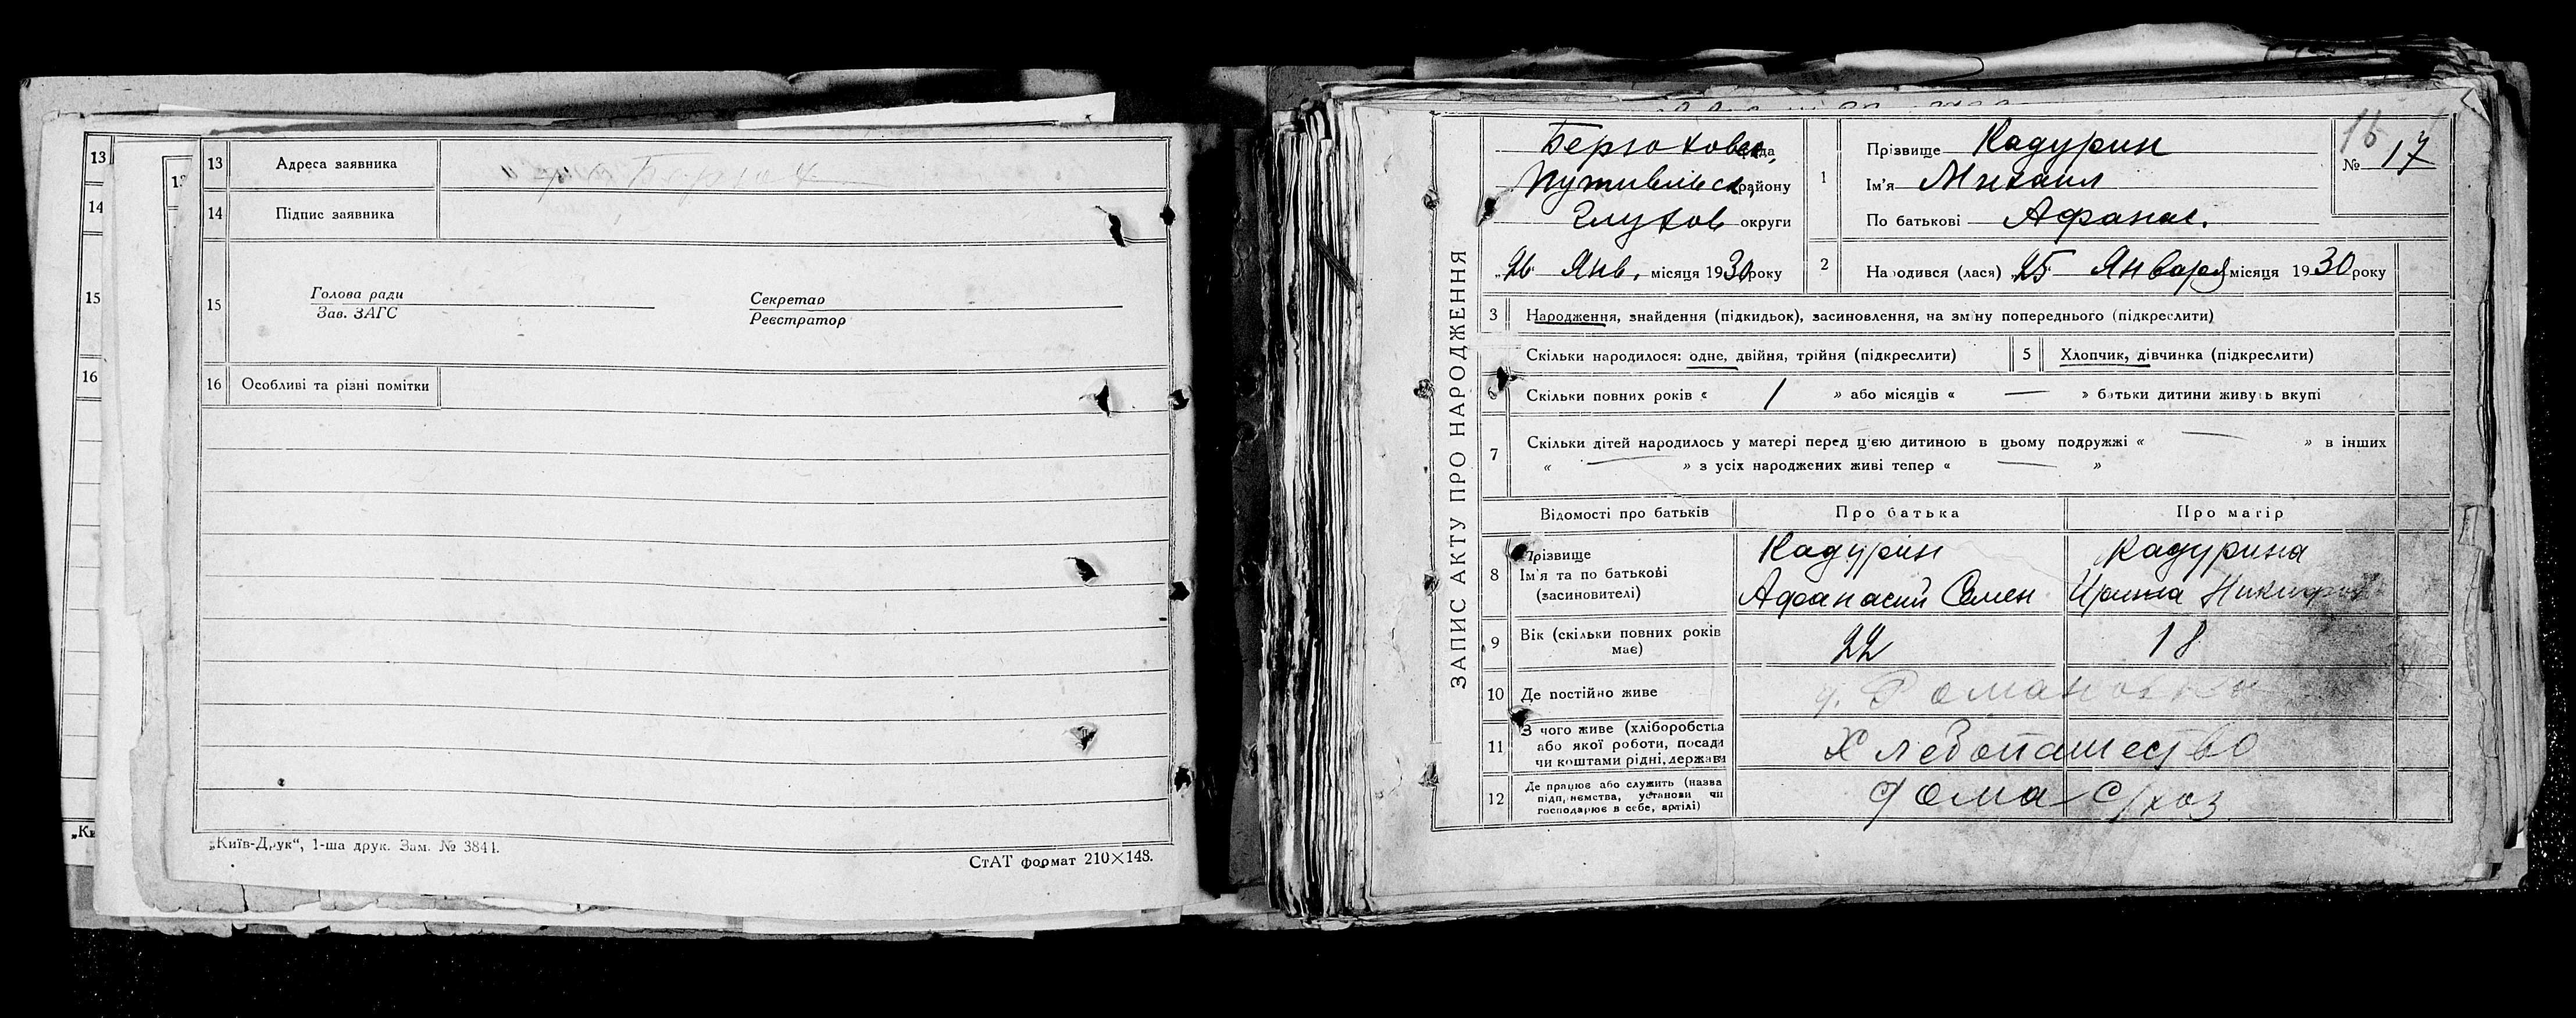 13
14
15
16
„Ки
13 Адреса заявника
14 Підпис заявника
15 Голова ради Секретар
Зав. ЗАГС Реєстратор
16 Особливі та різні помітки
„Київ-Друк“, 1-ша друк. Зам. № 3844.
СтАТ формат 210×148.
ЗАПИС АКТУ ПРО НАРОДЖЕННЯ
Берюховск. рада
Путивльск. району
Глухов округи
„26“ Янв. місяця 1930 року
1 Прізвище Кадурин
Ім'я Михаил
По батькові Афанас.
16
№ 17
2 Народився (лася) „25“ Января місяця 1930 року
3 Народження, знайдення (підкидьок), засиновлення, на зміну попереднього (підкреслити)
Скільки народилося: одне, двійня, трійня (підкреслити) 5 Хлопчик, дівчинка (підкреслити)
6 Скільки повних років « 1 » або місяців « — » батьки дитини живуть вкупі
7 Скільки дітей народилось у матері перед цією дитиною в цьому подружжі « — » в інших
« — » з усіх народжених живі тепер « — »
Відомості про батьків Про батька Про матір
8 Прізвище Кадурин Кадурина
Ім'я та по батькові
(засиновителі) Афанасий Семен Ирина Никифор
9 Вік (скільки повних років має) 22 18
10 Де постійно живе Романовка
11 З чого живе (хліборобства
або якої роботи, посади
чи коштами рідні, держави Хлебопашество
12 Де працює або служить (назва
підприємства, установи чи
господарює в себе, артілі) дома с/хоз